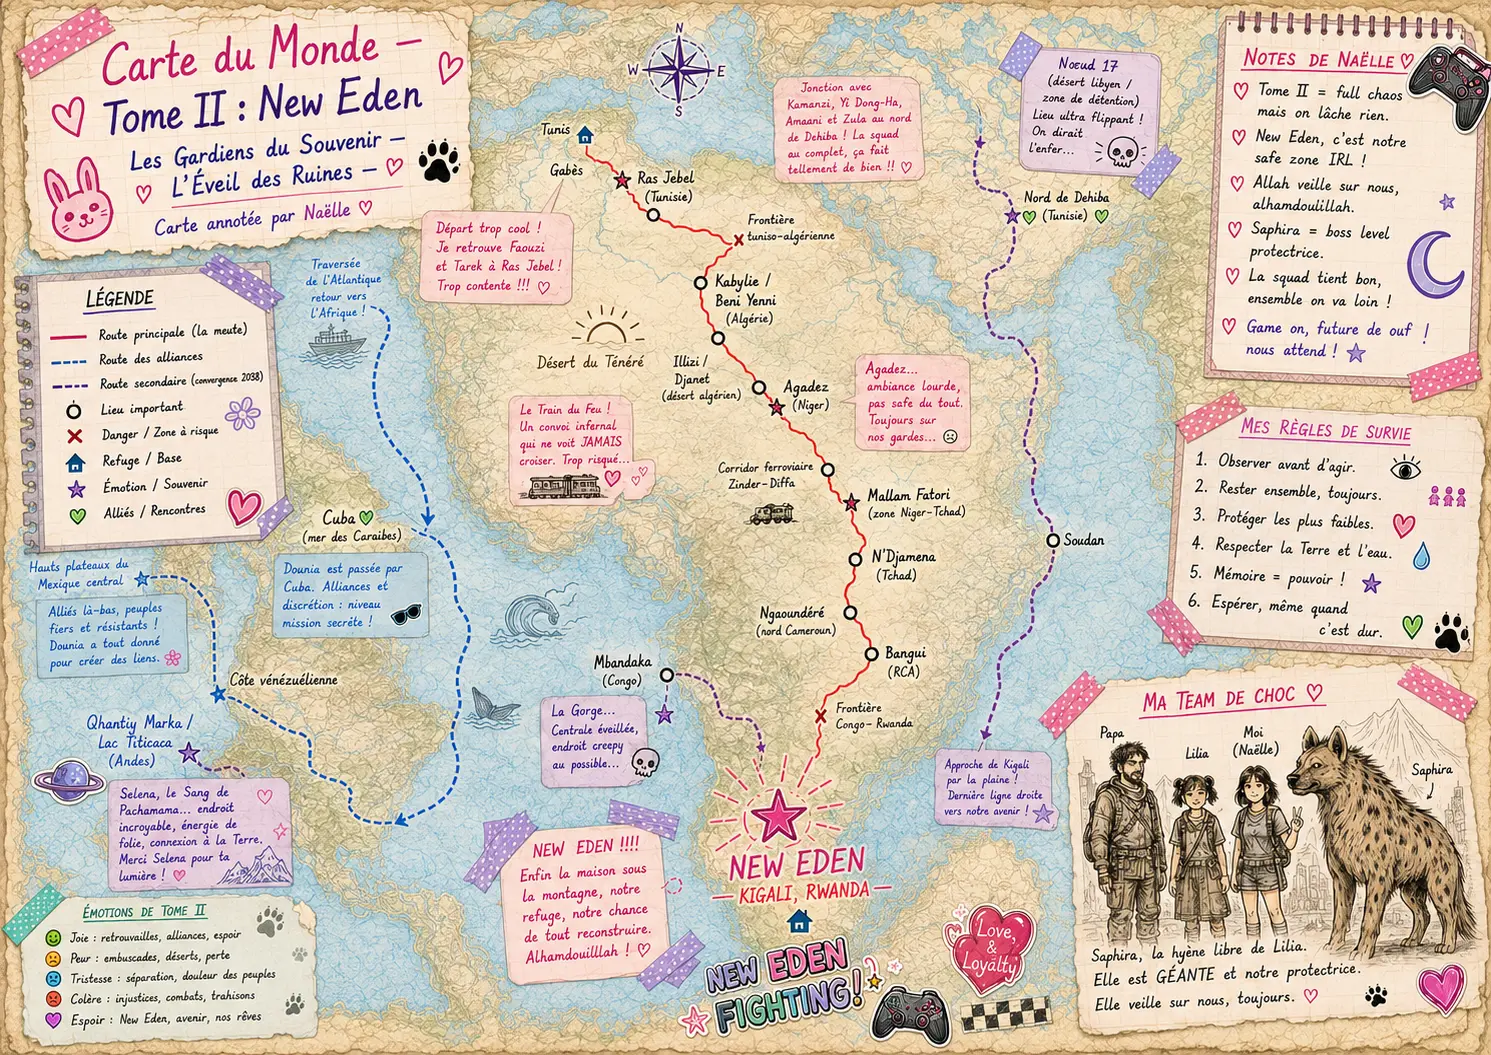 Carte du Monde –
Tome II : New Eden
Les Gardiens du Souvenir –
L'Éveil des Ruines –
Carte annotée par Naëlle
N
W
E
S
LÉGENDE
Route principale (la meute)
Route des alliances
Route secondaire (convergence 2038)
Lieu important
Danger / Zone à risque
Refuge / Base
Émotion / Souvenir
Alliés / Rencontres
Traversée
de l'Atlantique
retour vers
l'Afrique !
Tunis
Gabès
Ras Jebel
(Tunisie)
Départ trop cool !
Je retrouve Faouzi
et Tarek à Ras Jebel !
Trop contente !!!
Frontière
tuniso-algérienne
Kabylie /
Beni Yenni
(Algérie)
Désert du Ténéré
Illizi /
Djanet
(désert algérien)
Agadez
(Niger)
Agadez...
ambiance lourde,
pas safe du tout.
Toujours sur
nos gardes...
Le Train du Feu !
Un convoi infernal
qui ne voit JAMAIS
croiser. Trop risqué...
Corridor ferroviaire
Zinder-Diffa
Mallam Fatori
(zone Niger-Tchad)
N'Djamena
(Tchad)
Ngaoundéré
(nord Cameroun)
Bangui
(RCA)
Frontière
Congo-Rwanda
Mbandaka
(Congo)
La Gorge...
Centrale éveillée,
endroit creepy
au possible...
Jonction avec
Kamanzi, Yi Dong-Ha,
Amaani et Zula au nord
de Dehiba ! La squad
au complet, ça fait
tellement de bien !!
Nœud 17
(désert libyen /
zone de détention)
Lieu ultra flippant !
On dirait
l'enfer...
Nord de Dehiba
(Tunisie)
Soudan
Approche de Kigali
par la plaine !
Dernière ligne droite
vers notre avenir !
Cuba
(mer des Caraibes)
Dounia est passée par
Cuba. Alliances et
discrétion : niveau
mission secrète !
Hauts plateaux du
Mexique central
Alliés là-bas, peuples
fiers et résistants !
Dounia a tout donné
pour créer des liens.
Côte vénézuélienne
Qhantiy Marka /
Lac Titicaca
(Andes)
Selena, le Sang de
Pachamama... endroit
incroyable, énergie de
folie, connexion à la Terre.
Merci Selena pour ta
lumière !
ÉMOTIONS DE TOME II
Joie : retrouvailles, alliances, espoir
Peur : embuscades, déserts, perte
Tristesse : séparation, douleur des peuples
Colère : injustices, combats, trahisons
Espoir : New Eden, avenir, nos rêves
NEW EDEN !!!!
Enfin la maison sous
la montagne, notre
refuge, notre chance
de tout reconstruire.
Alhamdouilllah !
NEW EDEN
— KIGALI, RWANDA —
NEW EDEN
FIGHTING!
Love,
&
Loyalty
NOTES DE NAËLLE
Tome II = full chaos
mais on lâche rien.
New Eden, c'est notre
safe zone IRL !
Allah veille sur nous,
alhamdoulillah.
Saphira = boss level
protectrice.
La squad tient bon,
ensemble on va loin !
Game on, future de ouf !
nous attend !
MES RÈGLES DE SURVIE
1. Observer avant d'agir.
2. Rester ensemble, toujours.
3. Protéger les plus faibles.
4. Respecter la Terre et l'eau.
5. Mémoire = pouvoir !
6. Espérer, même quand
c'est dur.
MA TEAM DE CHOC
Papa
Lilia
Moi
(Naëlle)
Saphira
Saphira, la hyène libre de Lilia.
Elle est GÉANTE et notre protectrice.
Elle veille sur nous, toujours.